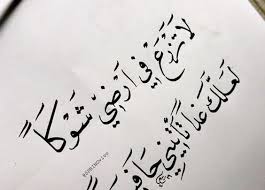 لَا تَزْرَعْ فِي أَرْضِي شَوْكًا
لَعَلَّكَ غَدًا تَأْتِينِي حَافِيًا